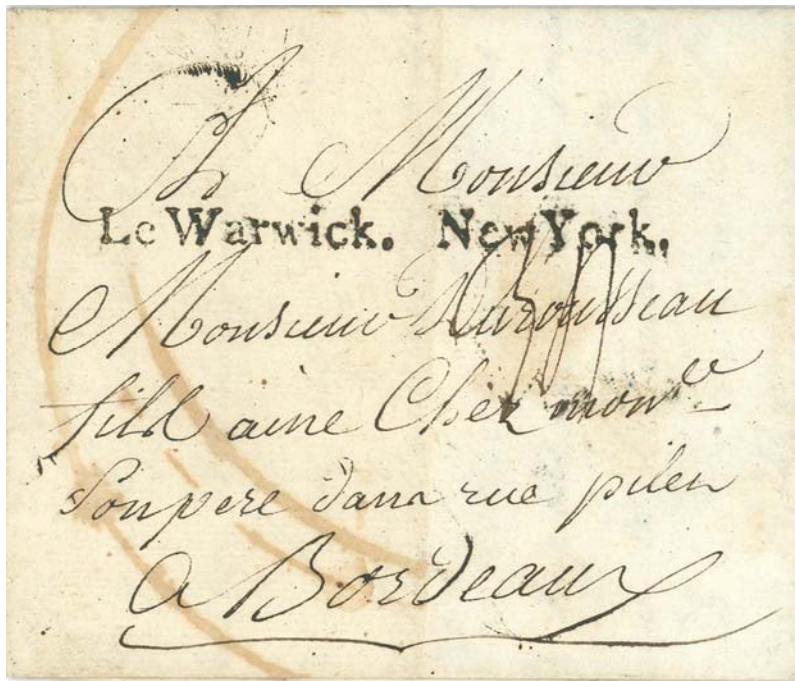 A Monsieur
Le Warwick. New York,
Monsieur Durousseau
fils ainé Chez mon
Son pere dans rue
a Bordeaux